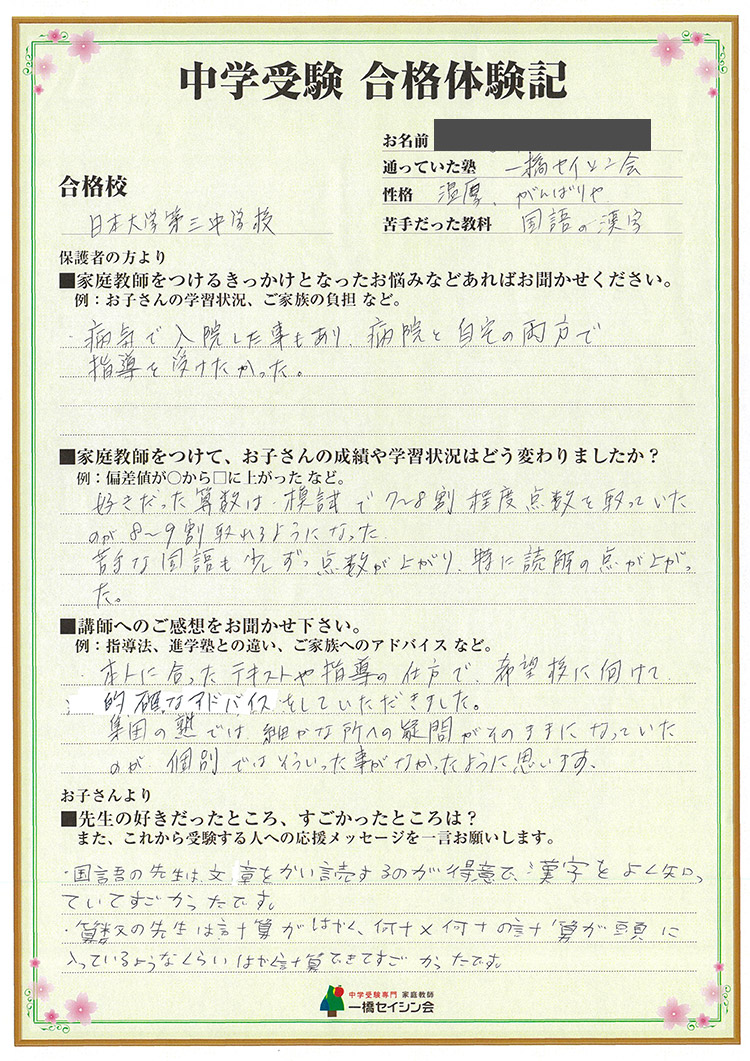 中学受験 合格体験記
お名前
通っていた塾 一橋セイシン会
合格校
性格 温厚、がんばりや
日本大学第三中学校
苦手だった教科 国語の漢字
保護者の方より
■家庭教師をつけるきっかけとなったお悩みなどあればお聞かせください。
例：お子さんの学習状況、ご家族の負担 など。
・病気で入院した事もあり、病院と自宅の両方で
指導を受けたかった。
■家庭教師をつけて、お子さんの成績や学習状況はどう変わりましたか？
例：偏差値が○から□に上がった など。
好きだった算数は、模試で7〜8割程度点数を取っていた
のが8〜9割取れるようになった。
苦手な国語も少しずつ点数が上がり、特に読解の点が上がっ
た。
■講師へのご感想をお聞かせ下さい。
例：指導法、進学塾との違い、ご家族へのアドバイス など。
・本人に合ったテキストや指導の仕方で、希望校に向けて
的確なアドバイスをしていただきました。
集団の塾では細かな所への疑問がそのままになっていた
のが個別ではそういった事がなかったように思います。
お子さんより
■先生の好きだったところ、すごかったところは？
また、これから受験する人への応援メッセージを一言お願いします。
・国語の先生は、文章をかい読するのが得意で、漢字をよく知っ
ていてすごかったです。
・算数の先生は計算がはやく、何十×何十の計算が頭に
入っているようなくらいはやく計算できてすごかったです。
中学受験専門 家庭教師
一橋セイシン会